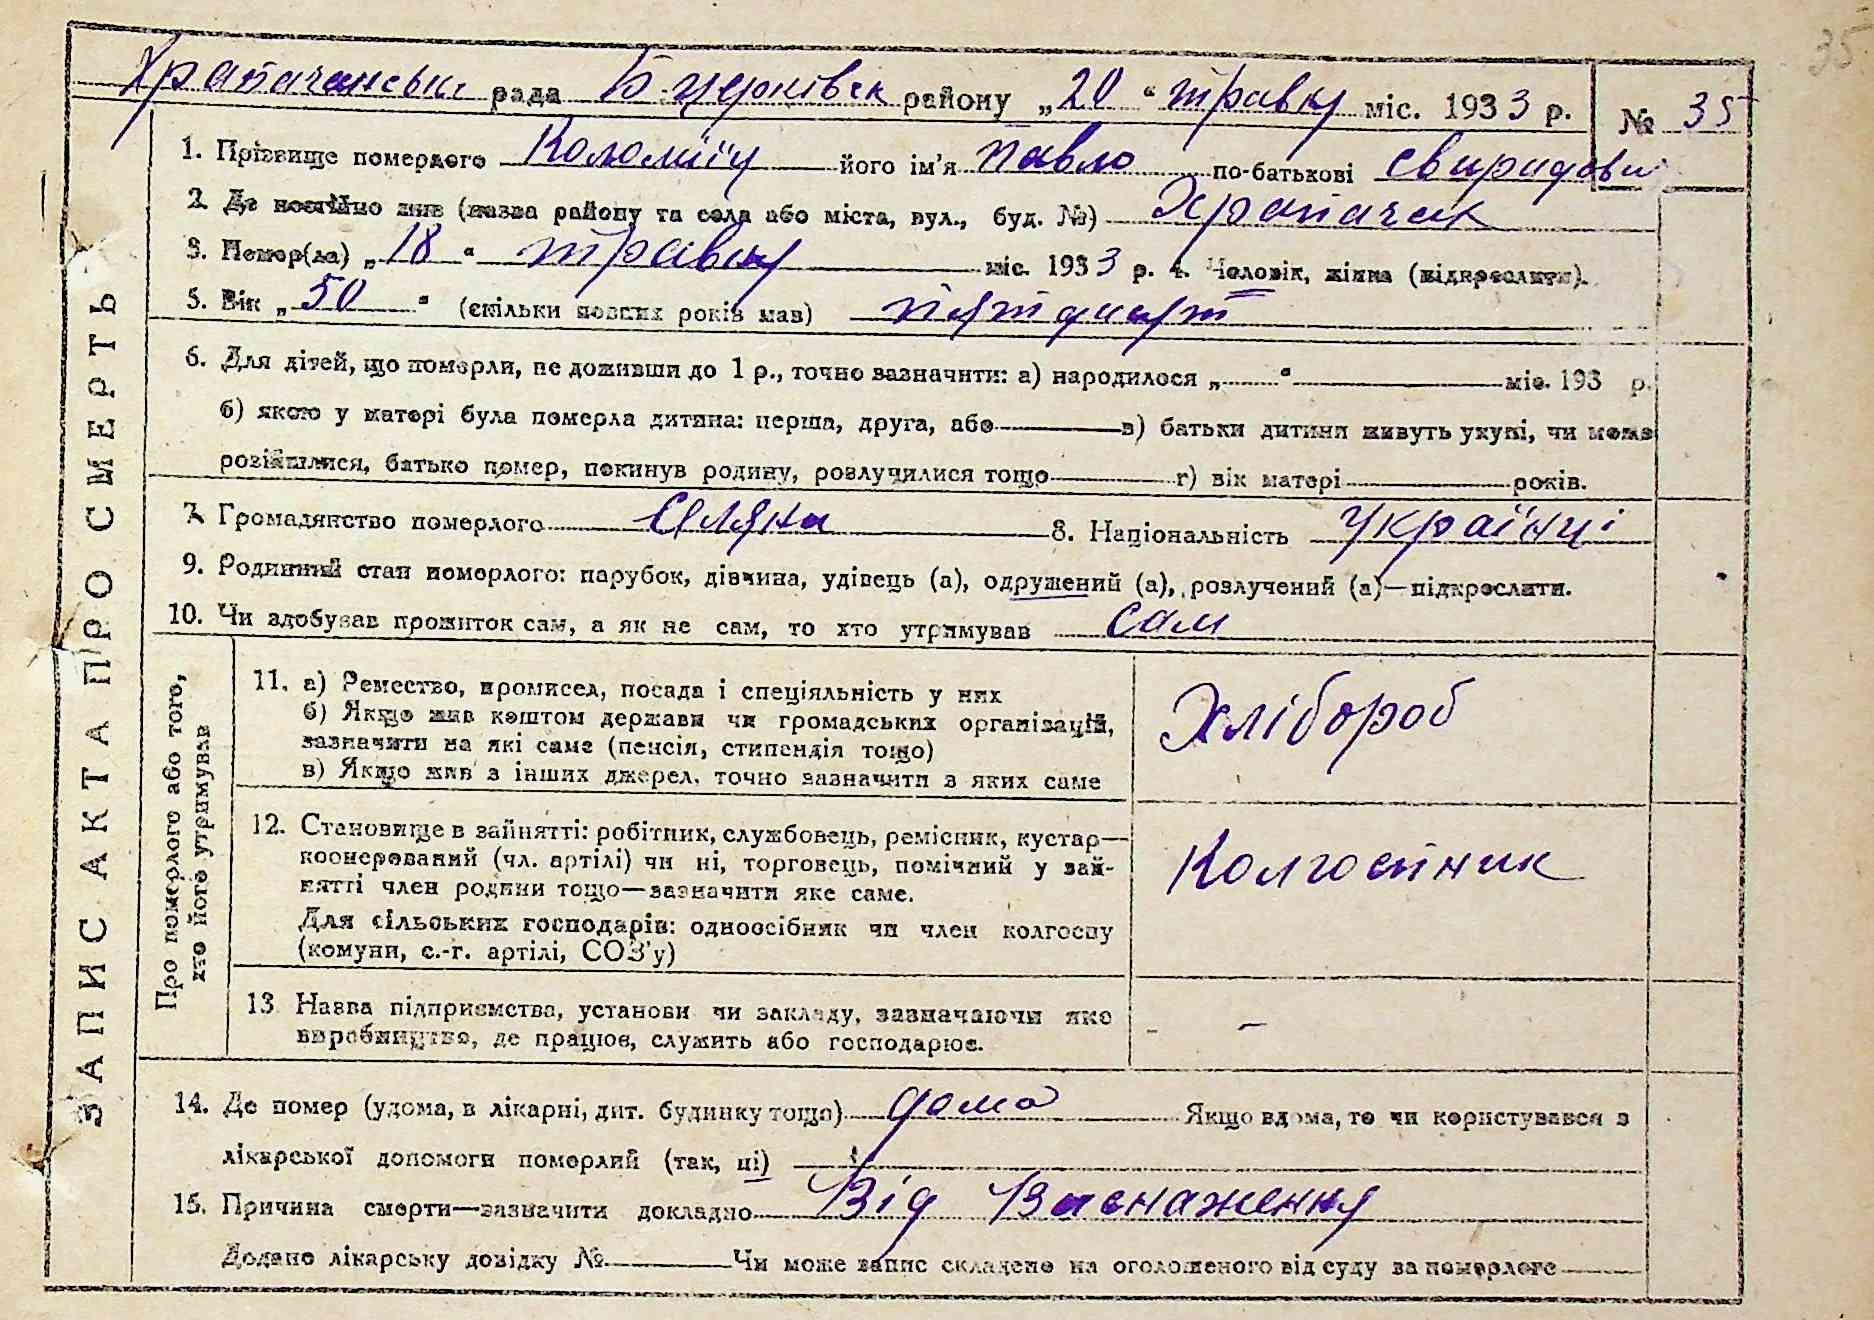 35
Храпачанська рада Б-Церківськ району „20“ травня міс. 1933 р. № 35
1. Прізвище померлого Коломійц його ім’я Павло по-батькові Свиридови
2. Де постійно жив (назва району та села або міста, вул., буд. №) Храпачах
3. Помер(ла) „18“ травня міс. 1933 р. 4. Чоловік, жінка (підкреслити).
5. Вік „50“ (скільки повних років мав) пятдисят
6. Для дітей, що померли, не доживши до 1 р., точно зазначити: а) народилося „ “ міс. 193 р.
б) якою у матері була померла дитина: перша, друга, або в) батьки дитини живуть укупі, чи може
розійшлися, батько помер, покинув родину, розлучилися тощо г) вік матері років.
7. Громадянство померлого селяни 8. Національність українці
9. Родинний стан померлого: парубок, дівчина, удівець (а), одружений (а), розлучений (а)—підкреслити.
10. Чи здобував прожиток сам, а як не сам, то хто утримував сам
11. а) Ремество, промисел, посада і спеціяльність у них
б) Якщо жив коштом держави чи громадських організацій,
зазначити на які саме (пенсія, стипендія тощо)
в) Якщо жив з інших джерел, точно зазначити з яких саме
Хлібороб
12. Становище в зайнятті: робітник, службовець, ремісник, кустар—
кооперований (чл. артілі) чи ні, торговець, помічний у зай-
нятті член родини тощо—зазначити яке саме.
Для сільських господарів: одноосібник чи член колгоспу
(комуни, с.-г. артілі, СОЗ’у)
Колгоспник
13 Назва підприємства, установи чи закладу, зазначаючи яке
виробництво, де працює, служить або господарює.
- -
14. Де помер (удома, в лікарні, дит. будинку тощо) дома Якщо вдома, то чи користувався з
лікарської допомоги померлий (так, ні)
15. Причина смерти—зазначити докладно Від Виснаження
Додано лікарську довідку № Чи може запис складено на оголошеного від суду за померлого
ЗАПИС АКТА ПРО СМЕРТЬ
Про померлого або того,
хто його утримував